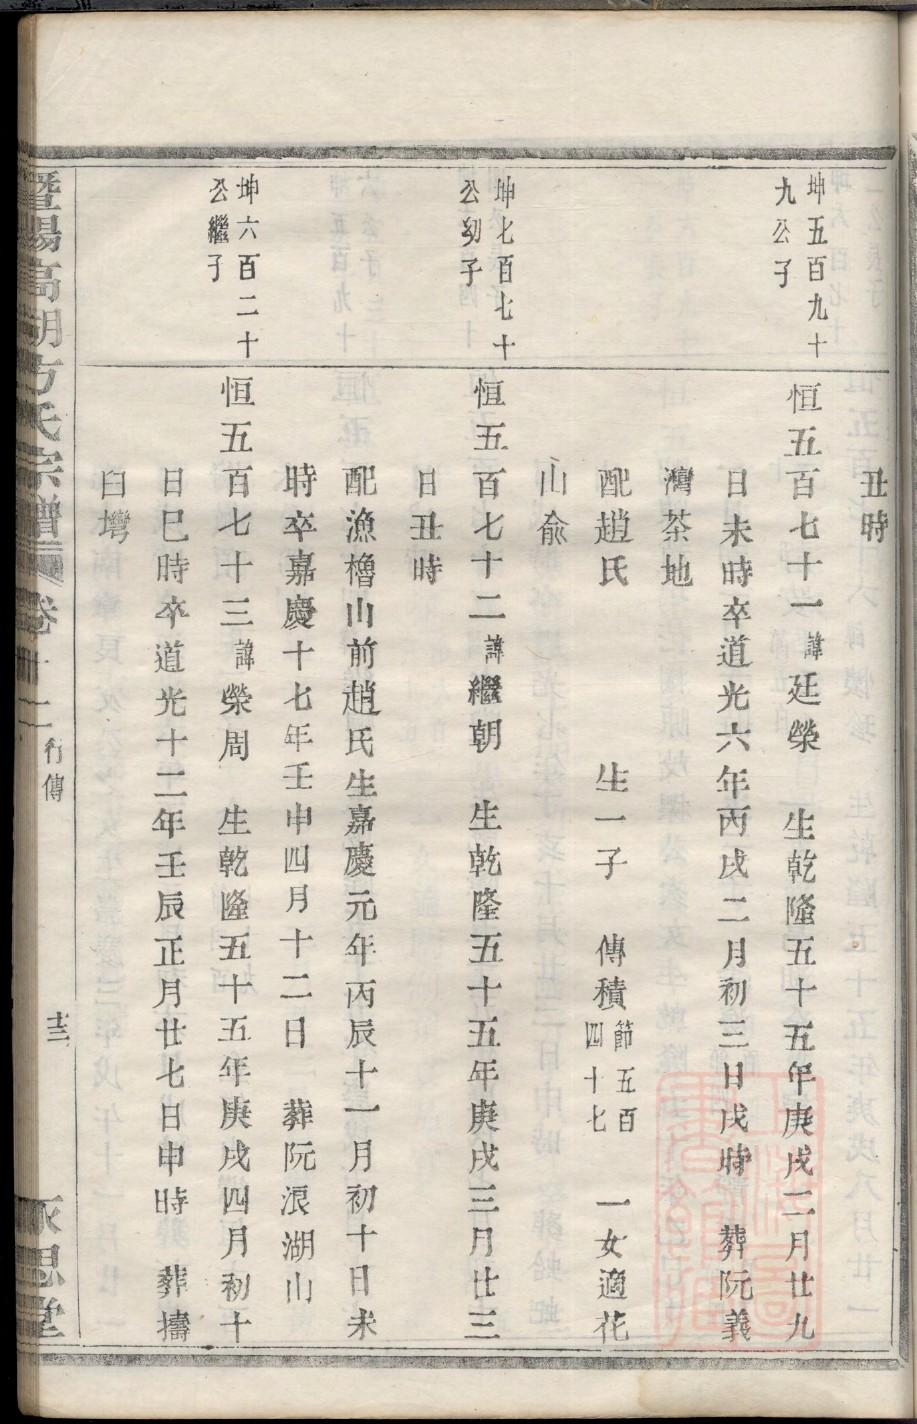 丑時
坤五百九十
九公子
恒五百七十一諱廷榮 生乾隆五十五年庚戌二月廿九
日未時卒道光六年丙戌二月初三日戌時 葬阮義
灣茶地
配趙氏 生一子 傳積節五百四十七 一女適花
山俞
坤七百七十
公幼子
恒五百七十二諱繼朝 生乾隆五十五年庚戌三月廿三
日丑時
配漁櫓山前趙氏生嘉慶元年丙辰十一月初十日未
時卒嘉慶十七年壬申四月十二日 葬阮浪湖山
坤六百二十
公繼子
恒五百七十三諱榮周 生乾隆五十五年庚戌四月初十
日巳時卒道光十二年壬辰正月廿七日申時 葬擣
臼灣
暨陽高湖方氏宗譜 卷十二 行傳 十三 永思堂